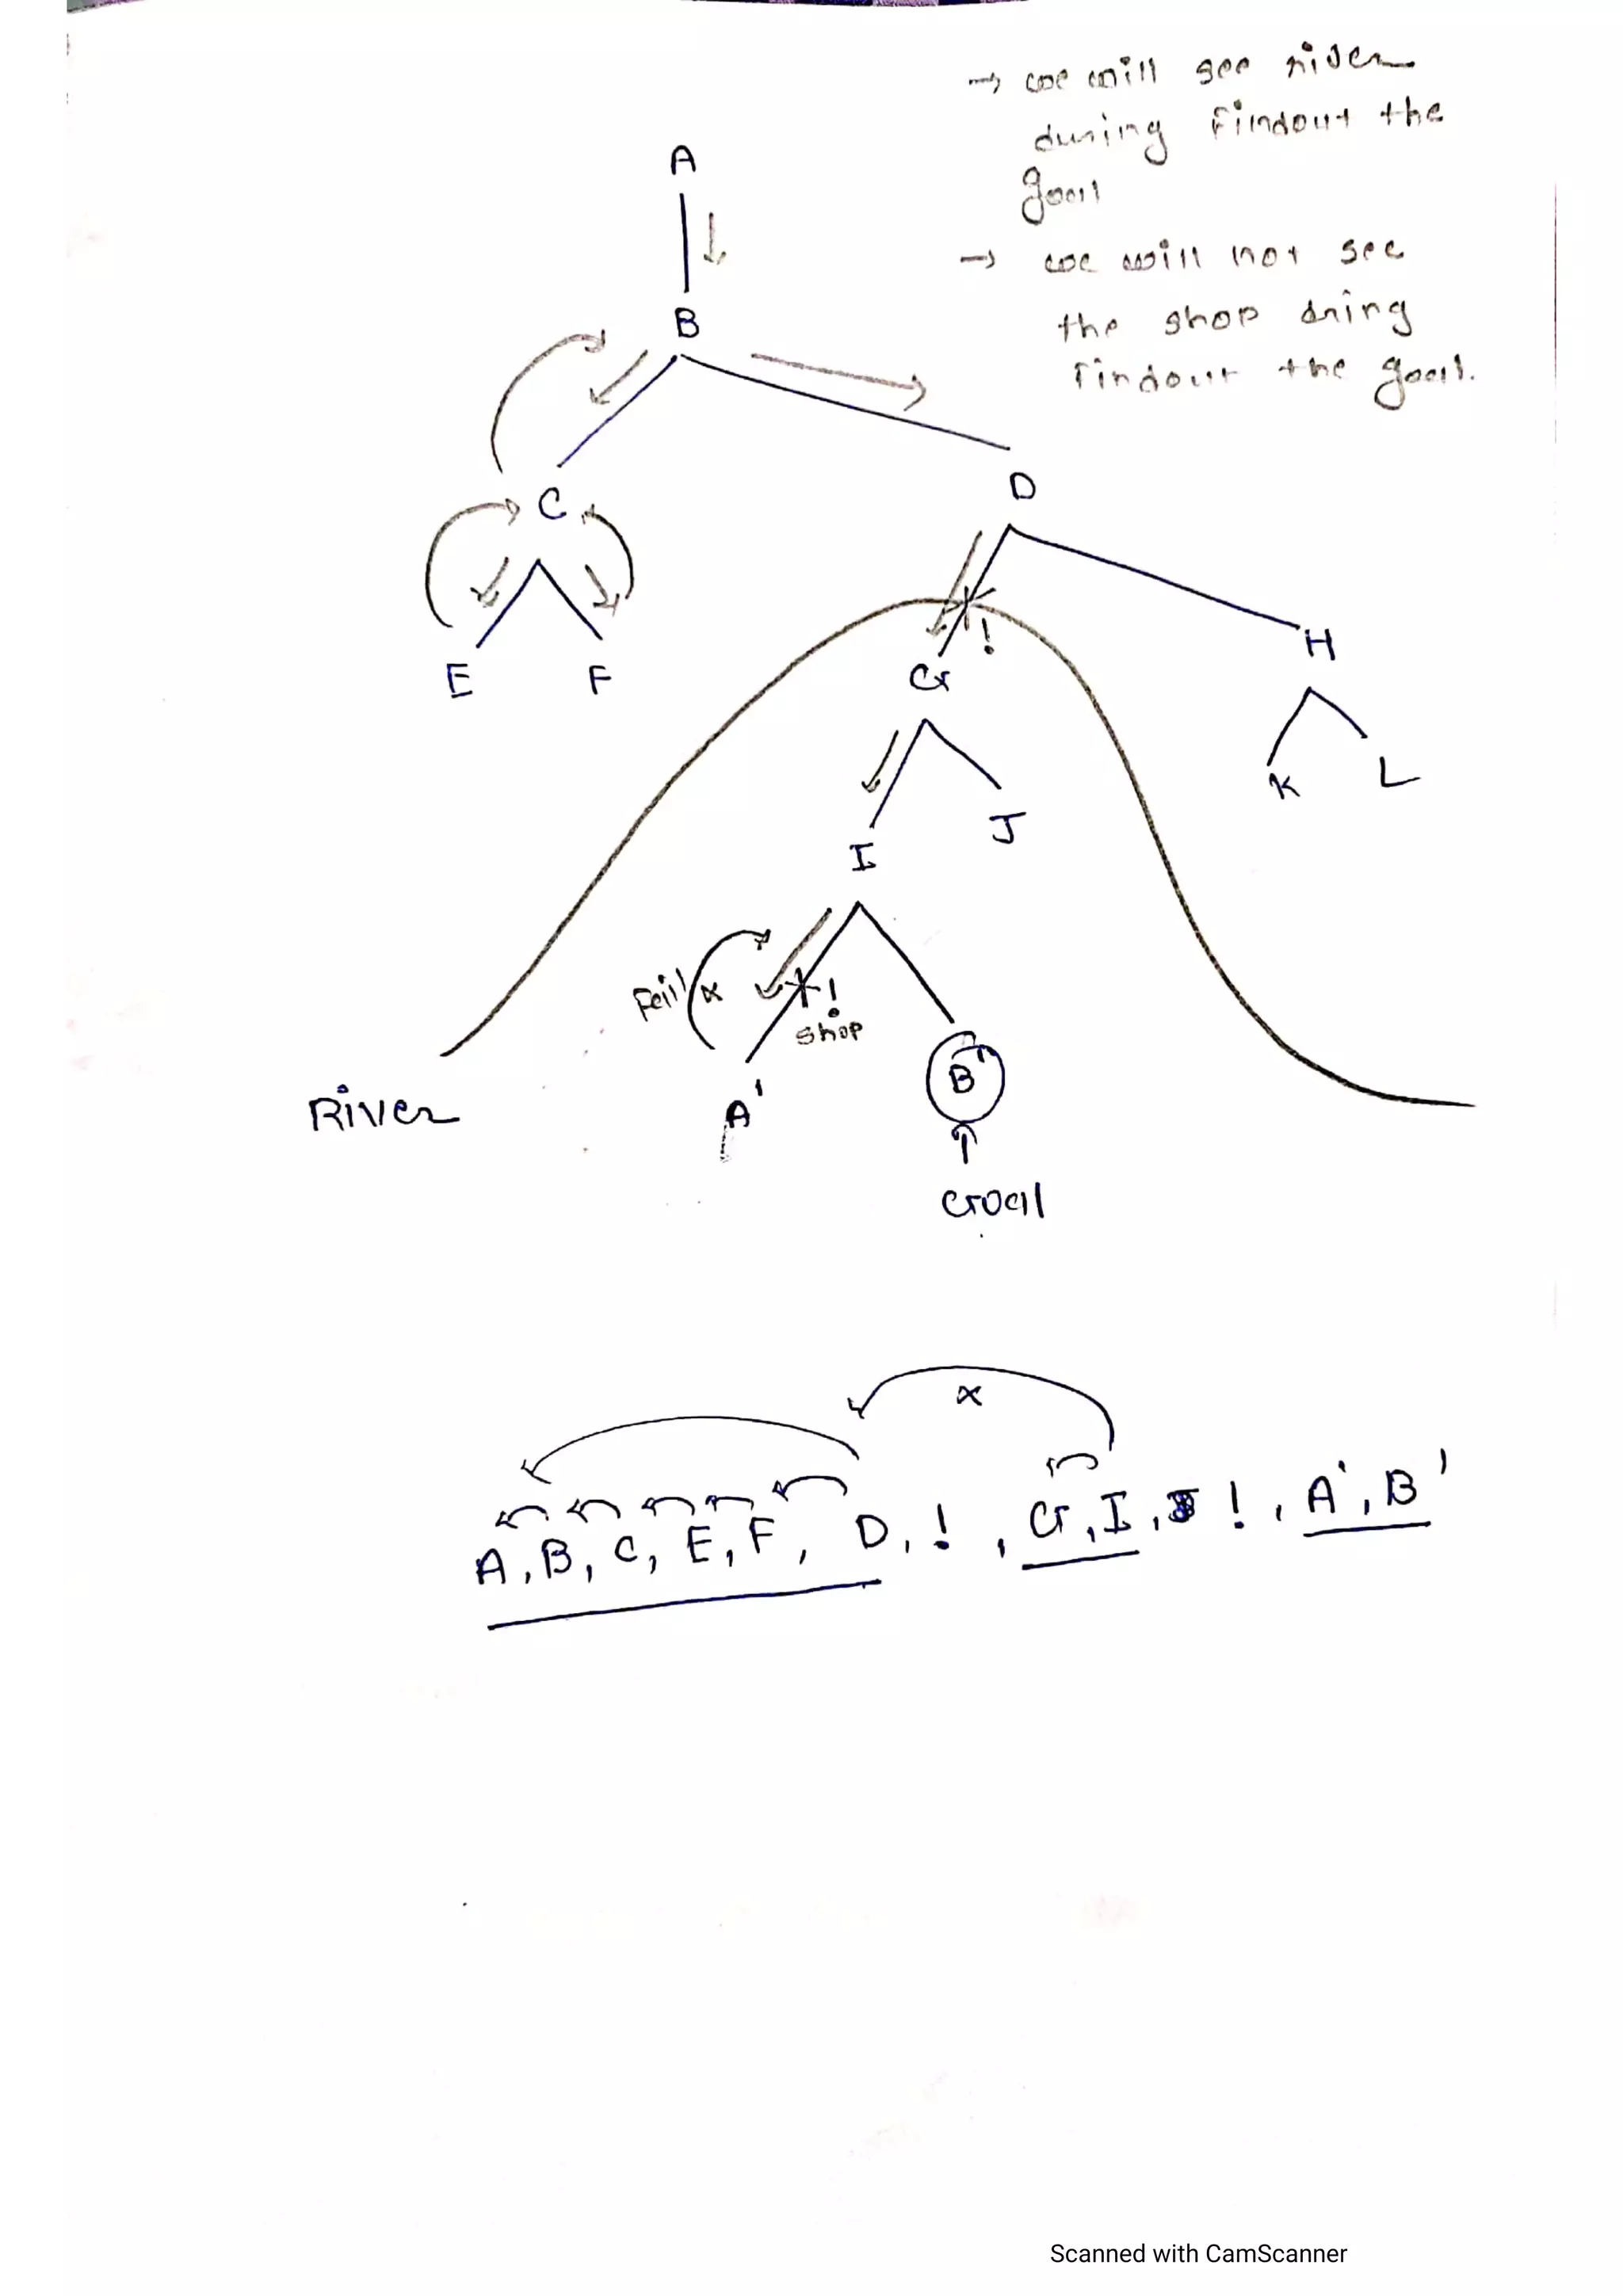 → we will see river
during findout the
goal
→ we will not see
the shop dring
findout the goal.
A
B
C
D
E
F
!
G
H
I
J
K
L
Fail
x
!
shop
A'
B'
River
Goal
x
A, B, C, E, F, D, !, G, I, !, A', B'
Scanned with CamScanner